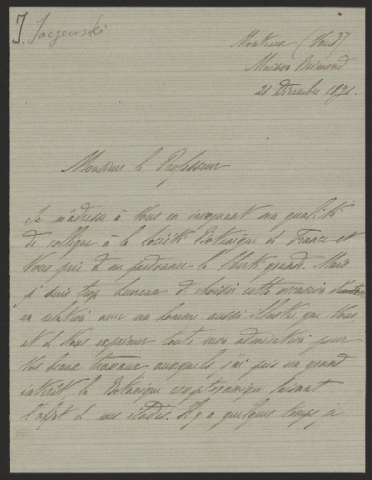 J. Jaczewski
Montreux (Vaud)
Maison Brémond
21 Décembre 1892.
Monsieur le Professeur
Je m'adresse à Vous en invoquant ma qualité
de collègue à la Société Botanique de France et
Vous prie de me pardonner la liberté grande. Mais
j'étais trop heureux de choisir cette occasion d'entrer
en relation avec un homme aussi illustre que Vous
et de Vous exprimer toute mon admiration pour
Vos beaux travaux auxquels j'ai pris un grand
intérêt la Botanique cryptogamique faisant
l'objet de mes études. Il y a quelques temps je